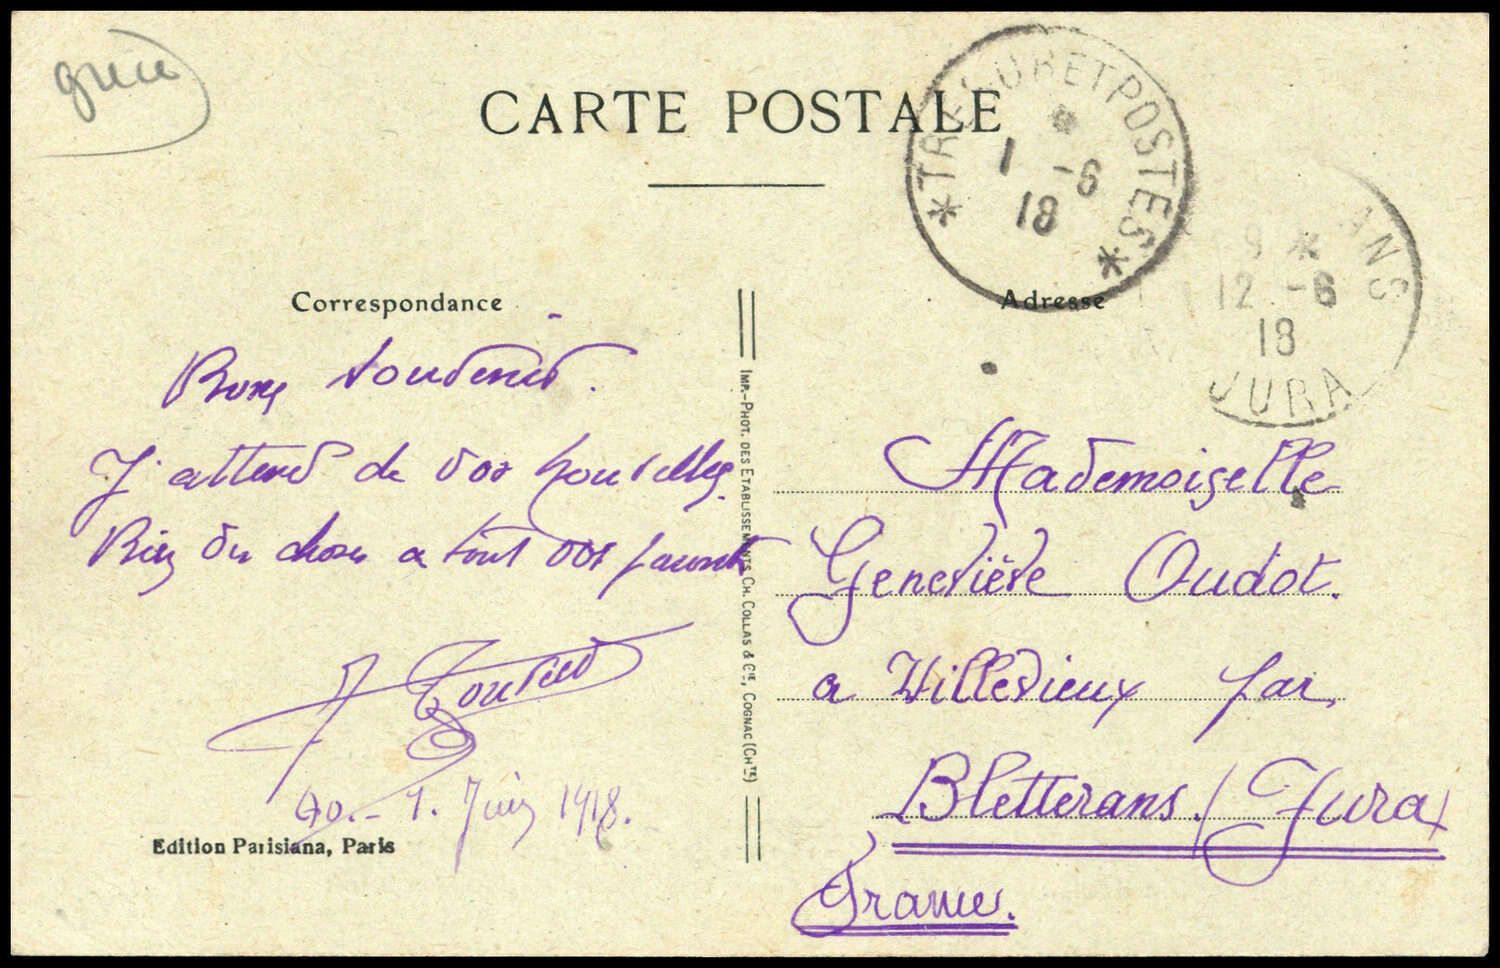 Grèce
CARTE POSTALE
*TRESOR ET POSTES*
*
1 -6
18
9 *
12 -6
18
JURA
Correspondance
Adresse
Bons souvenirs.
J'attend de vos nouvelles.
Bien des choses a tout vos parents
40. - 1. Juin 1918.
Edition Parisiana, Paris
IMP.-PHOT. DES ETABLISSEMENTS CH. COLLAS & CIE, COGNAC (CHTE)
Mademoiselle
Geneviève Oudot.
a Villevieux par
Bletterans. (Jura)
France.